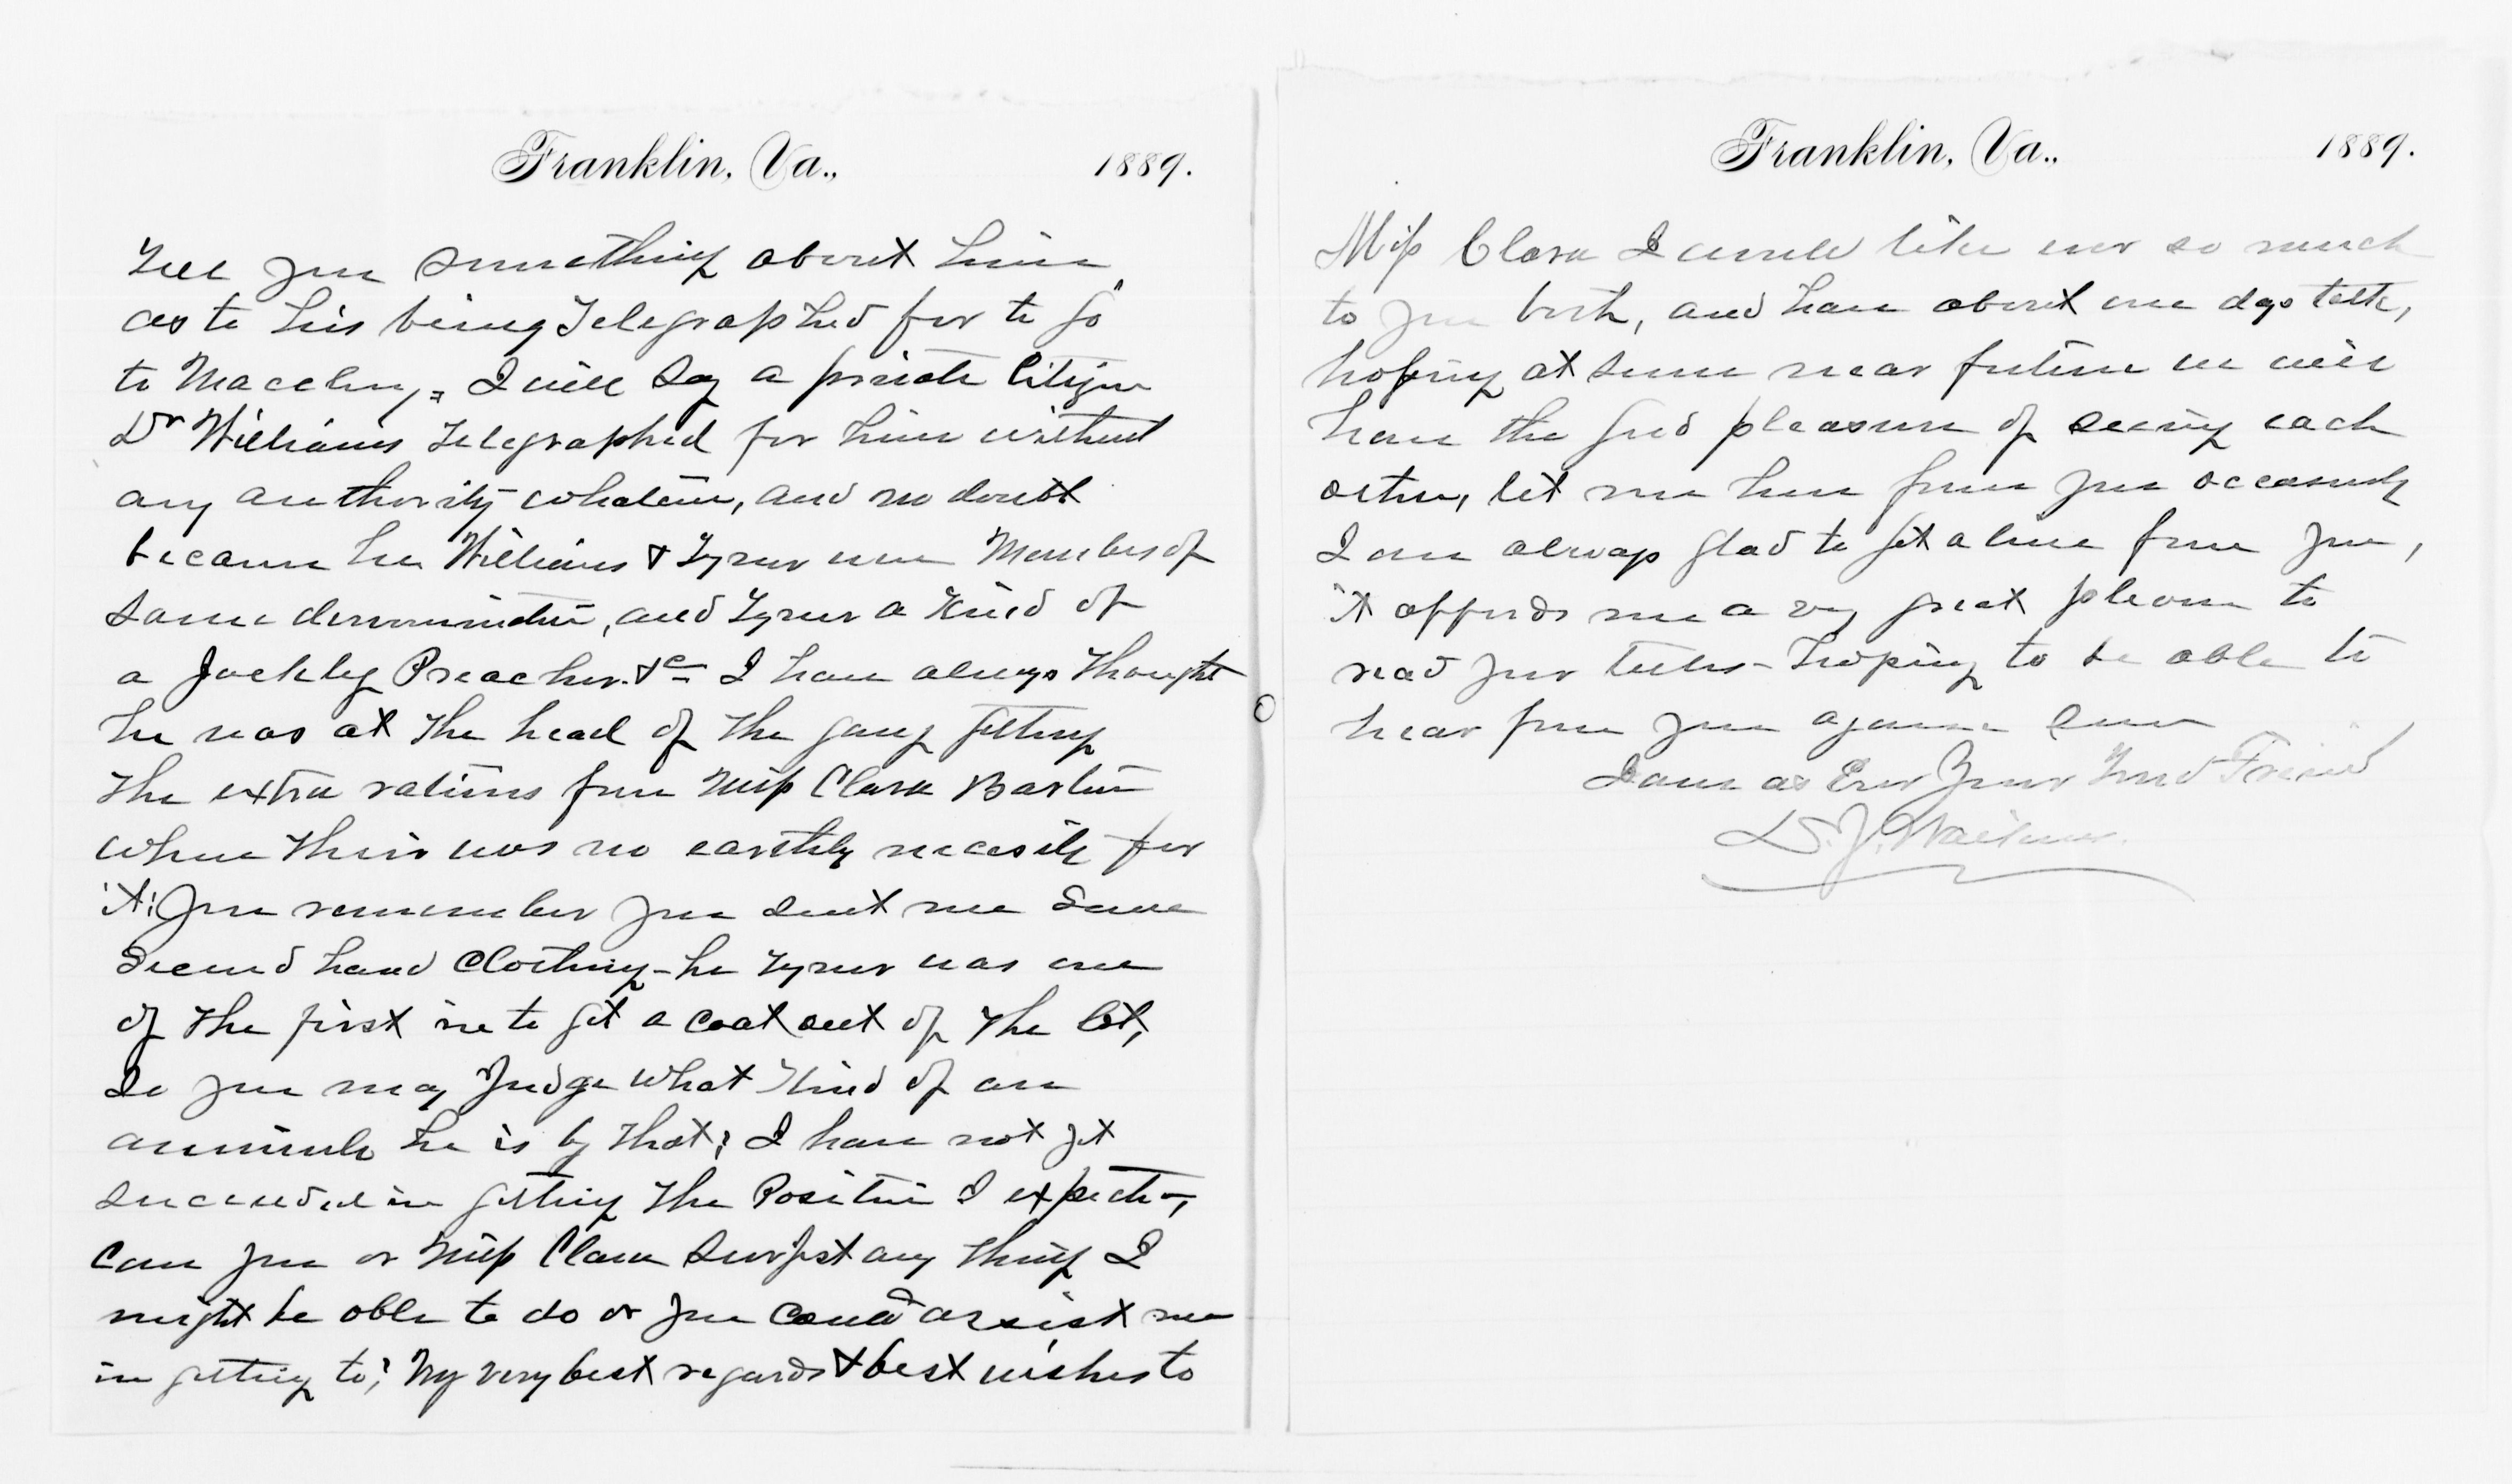 Franklin, Va., 1889.
tell you something about him
as to his being Telegraphed for to go
to Macclenny, I will say a private Citizen
Dr Williams Telegraphed for him without
any authority whatever, and no doubt
because he Williams & Tyner were Members of
same denomination, and Tyner a Kind of
a Jackleg Preacher. &c I have always thought
he was at the head of the gang getting
the extra rations from Miss Clara Barton
when their was no earthly necesity for
it; You remember you sent me Some
Second hand Clothing - he Tyner was one
of the first in to get a coat out of the lot,
So you may Judge what Kind of an
he is by that; I have not yet
succeeded in getting the Position I expected,
Can you or Miss Clara any thing I
might be able to do or you could assist me
in getting to; My very best regards & best wishes to
Franklin, Va., 1889.
Miss Clara I would like ever so much
to you both, and have about one days talk,
hoping at some near future we will
have the good pleasure of seeing each
other, let me hear from you
I am always glad to get a line from you,
it affords me a very great pleasure to
read your letters - hoping to be able to
hear from you again soon
I am as Ever Your Friend